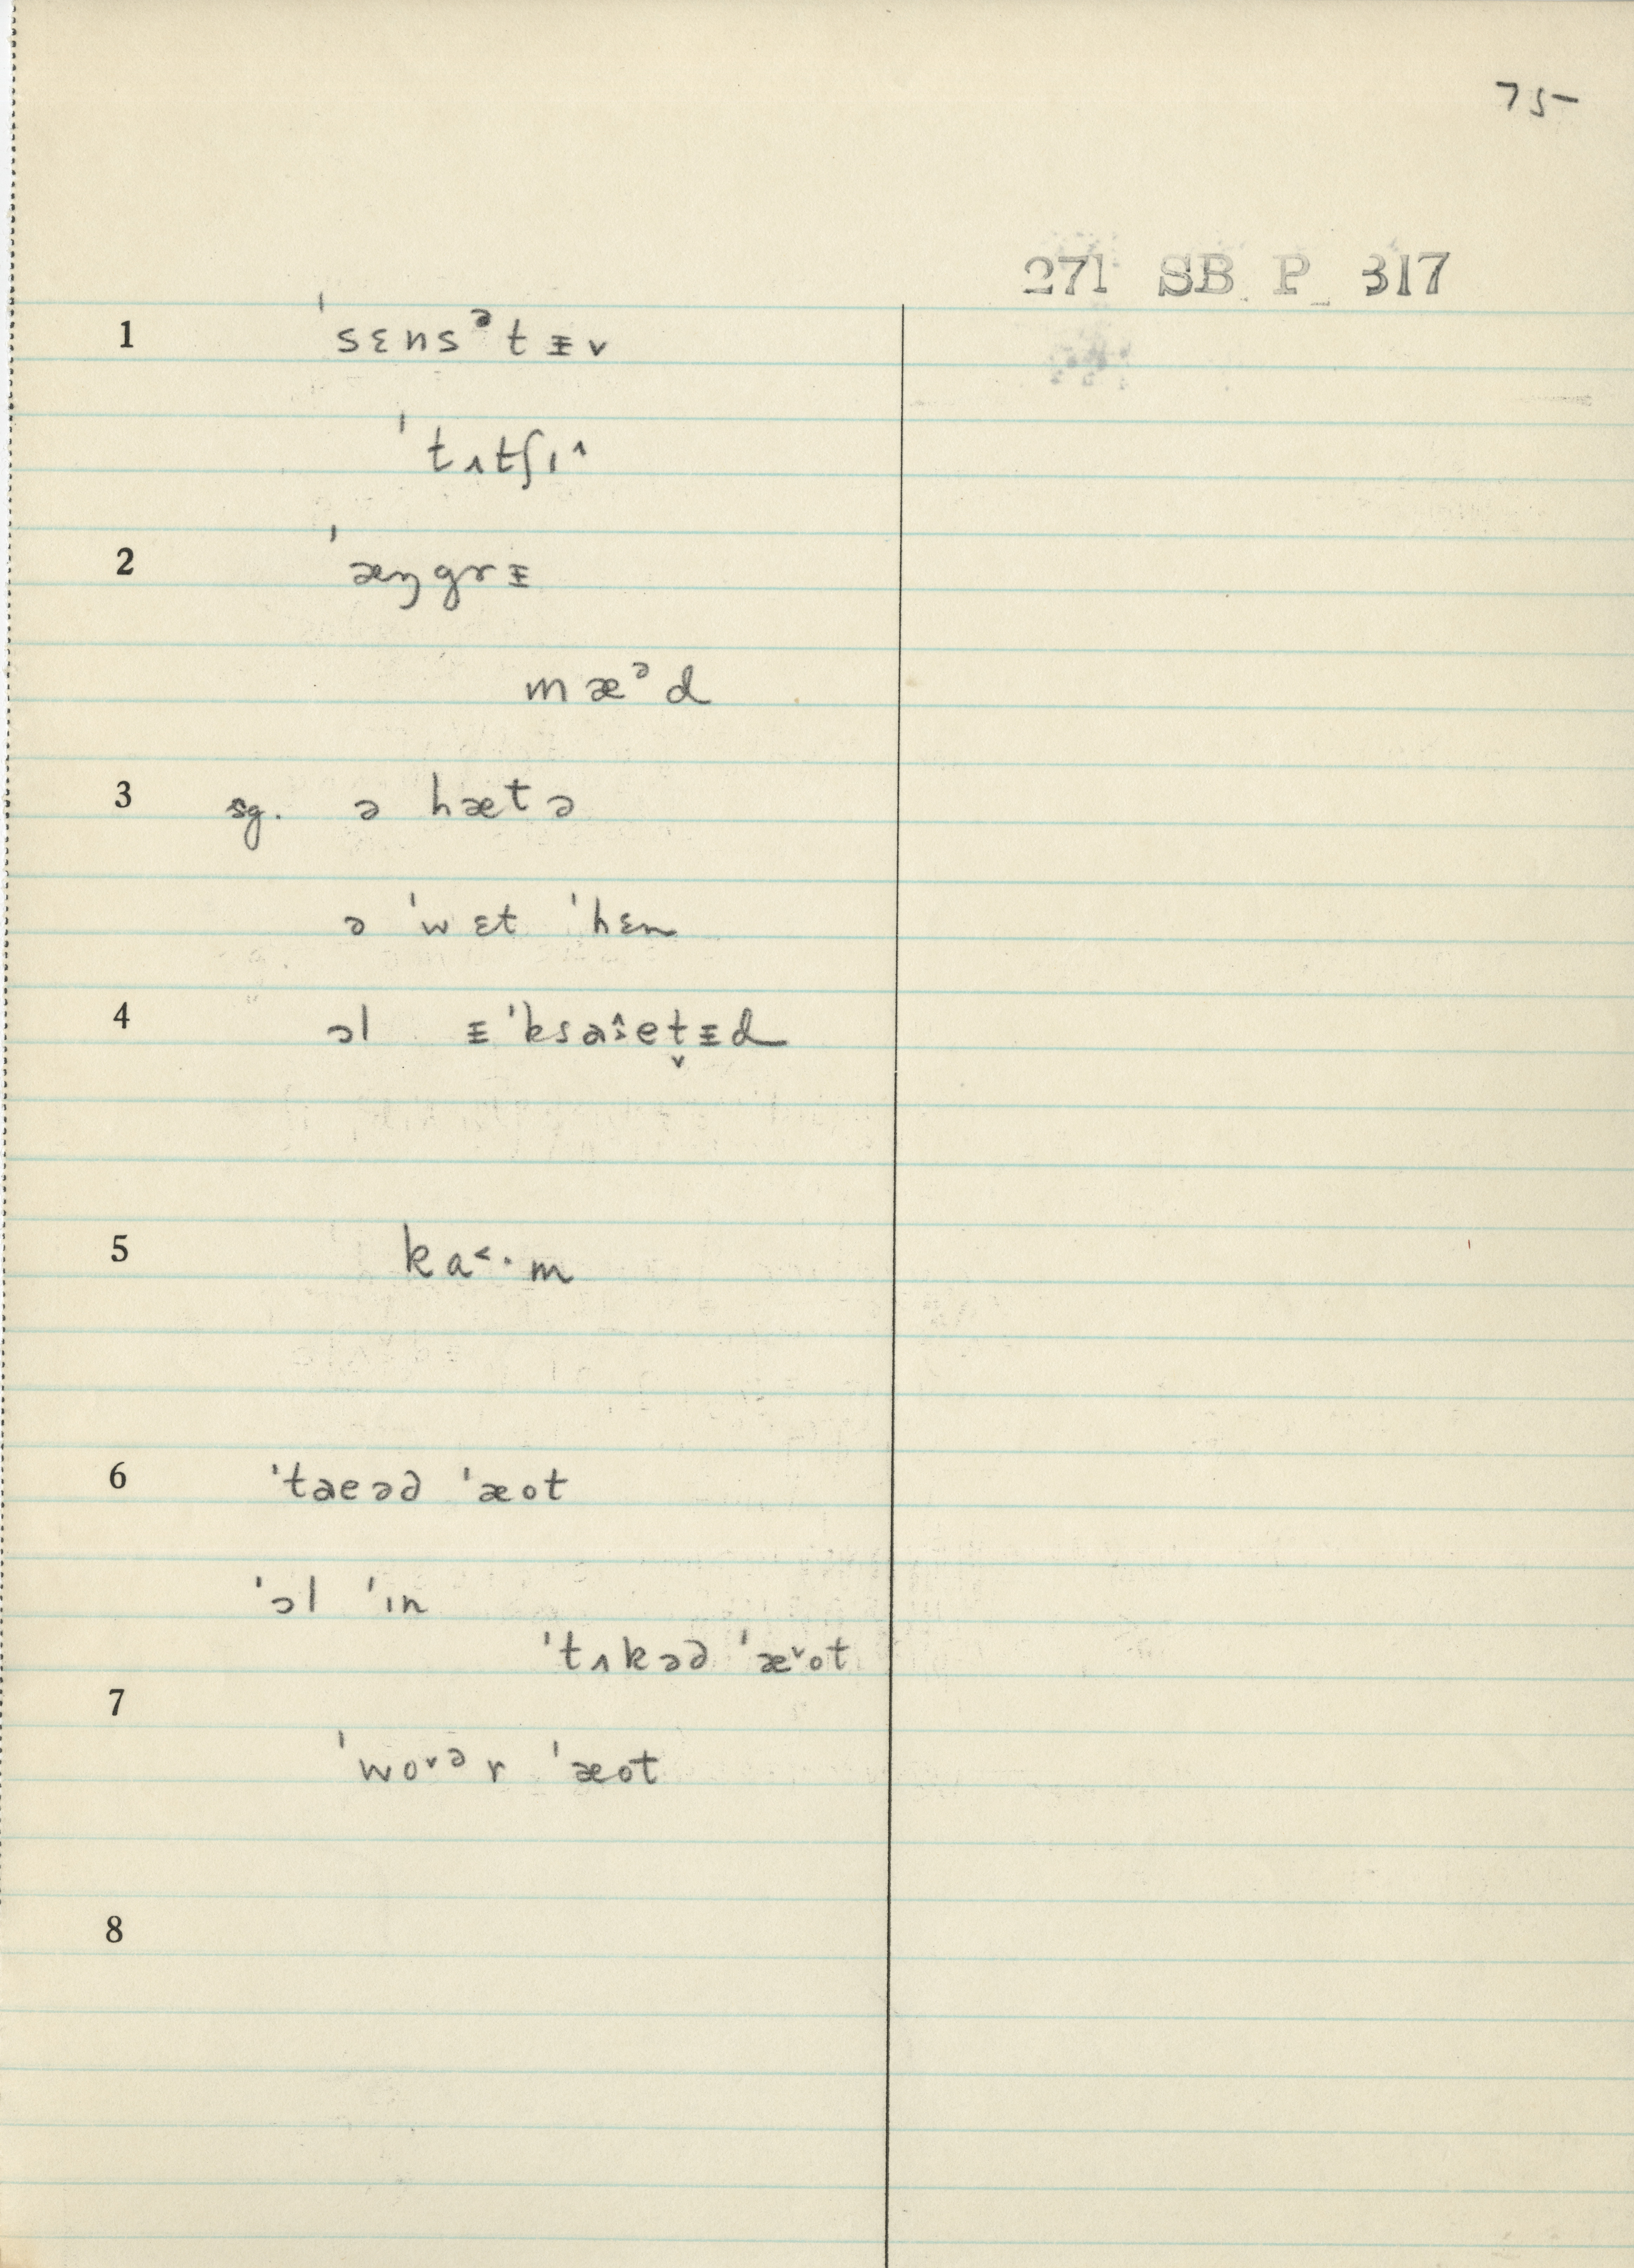 75
271 SB P 317
1 ˈsɛnsᵊtɪ̵v
ˈtʌtʃɪ˄
2 ˈæŋgrɪ̵
mæᵊd
3 sg. ə hætə
ə ˈwɛt ˈhɛn
4 ɔl ɪ̵ˈksaɪ̵̂et̬ɪ̵d
5 ka˂·m
6 ˈtaeəd ˈæot
ˈɔl ˈɪn
ˈtʌkəd ˈæ˅ot
7
ˈwo˅ᵊr ˈæot
8